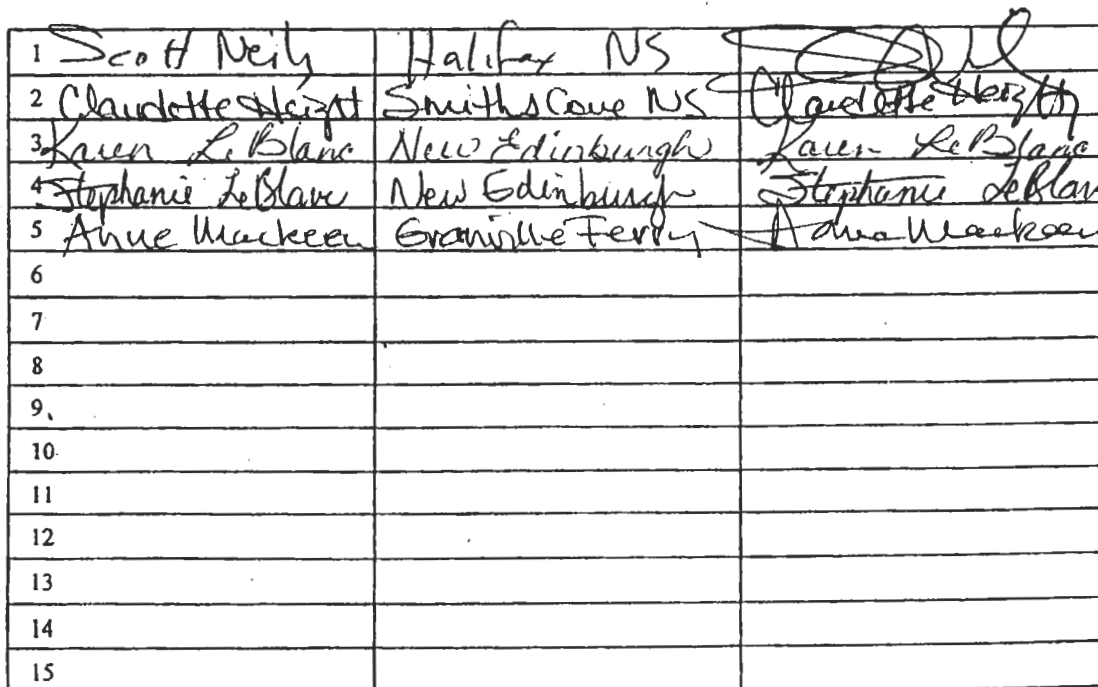 1 Scott Neily Halifax NS
2 Claudette Height Smiths Cove NS Claudette Height
3 Karen LeBlanc New Edinburgh Karen LeBlanc
4 Stephanie LeBlanc New Edinburgh Stephanie LeBlanc
5 Anne Mackeen Granville Ferry Mackeen
6
7
8
9
10
11
12
13
14
15